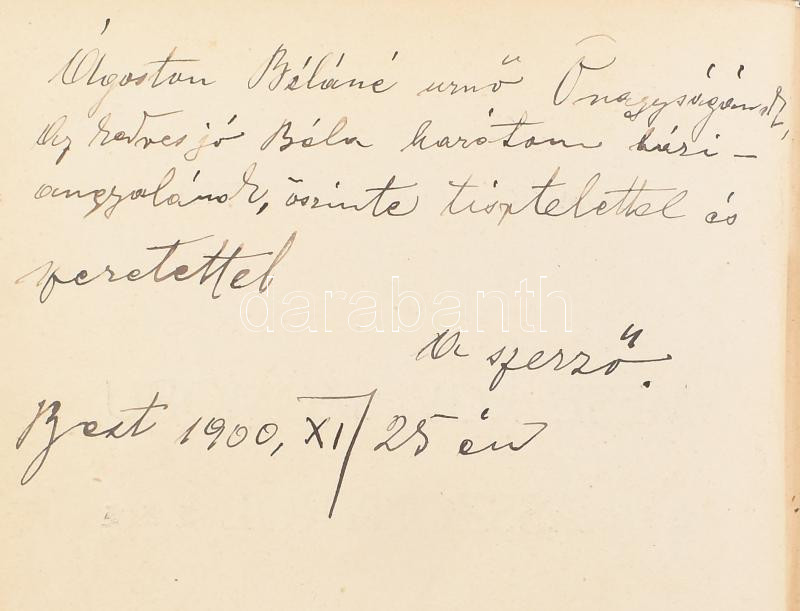 Ágoston Béláné urnő Őnagyságának,
Az kedves jó Béla barátom házi-
angyalának, őszinte tisztelettel és
szeretettel
darabanth
A szerző.
Pest 1900, XI/25 én